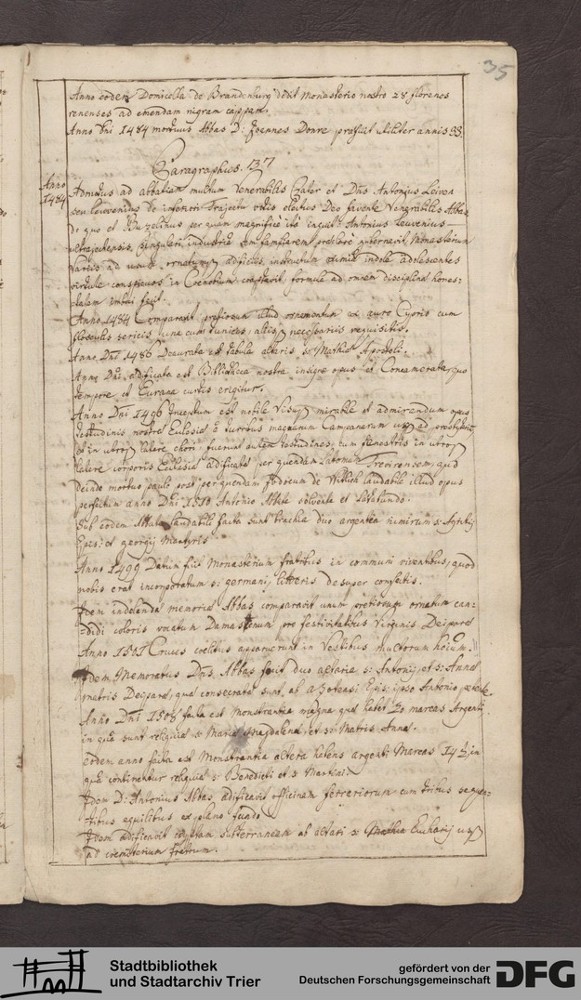 35
Anno eodem Domicella de Brandenburg dedit Monasterio nostro 28 florenos
renenses ad emendam nigram cappam.
Anno Dni 1484 mortuus Abbas D: Joannes Donre praefuit laliter annis 33.
Paragraphus. 137
Anno
1484
Admotus ad abbatiam multum Venerabilis Pater et Dns Antonius Leiven
seu Louvenius de inferiori Trajecto ortus electus Deo favente Venerabilis Abbas
de quo et Buzelinus per quam magnifice ita Antonius Leuvenius
ultrajectensis, singulari industria rem familiarem praeclare gubernavit, Monasterium
variis ad usum ornatumque adificiis instructum eximiae indole adolescentes
conspicuos in Coenobium formula ad omnem disciplinam hones-
tatem fecit.
Anno 1484 Comparavit pretiosum illud ornamentum ex auro Cyprio cum
flosculis sericis, una cum tunicis, aliisque necessariis requisitis.
Anno Dni 1486 Deaurata est tabula altaris s: Mathiae Apostoli.
Anno Dni adificata est Bibliotheca nostra insigne opus et Concamerata, quo
tempore et Curana curtis erigitur.
Anno Dni 1496 Inceptum est nobile Visuque mirabile et admirandum opus
testudinis nostrae Eclesiae a turribus magnarum Campanarum usque ad presbyterium
et in utroque latere chori fuerunt autem testudines, cum fenestris in utroque
latere corporis Eclesiae adificatae per quendam Latomum Trevirensem, quo
deinde mortuo paulo post per quendam Jodocum de Wittlich laudabile illud opus
perfectum anno Dni 1510 Antonio Abbate solvente et laetando.
Sub eodem Abbate laudabili facta sunt brachia duo argentea nimirum s: Agritij
Epis: et georgij Martyris
Anno 1499 Datum fuit Monasterium fratribus in communi viventibus, quod
nobis erat incorporatum s: germani, litteris desuper confectis.
Idem indelenda memoriae Abbas comparavit unum pretiosum ornatum can-
didi coloris vocatum Damastenum pro festivitatibus Virginis Deiparae
Anno 1501 Cruces coelitus apparuerunt in vestibus multorum hominum.
Idem Memoratus Dns Abbas fecit duo altaria s: Antonij et s: Annae
matris Deiparae, quae consecrata sunt ab Azotensi Epis: ipso Antonio praesente
Anno Dni 1508 facta est Monstrantia magna quae habet 20 marcas Argenti,
in qua sunt reliquiae s: Mariae Magdalenae, et s: Matris Annae.
eodem anno facta est Monstrantia altera habens argenti Marcas 14 1/2 in
qua continentur reliquiae s: Benedicti et s Martini.
Idem D: Antonius Abbas adificavit officinam ferrariorum cum tribus sequen-
tibus equilibus ex plano fundo.
Idem adificavit cryptam subterraneam ab altari s: Mathiae Eucharij usque
ad coemeterium fratrum.
Stadtbibliothek
und Stadtarchiv Trier
gefördert von der
Deutschen Forschungsgemeinschaft
DFG